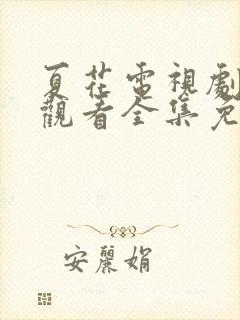 夏花電視劇
觀看全集免
安麗娟